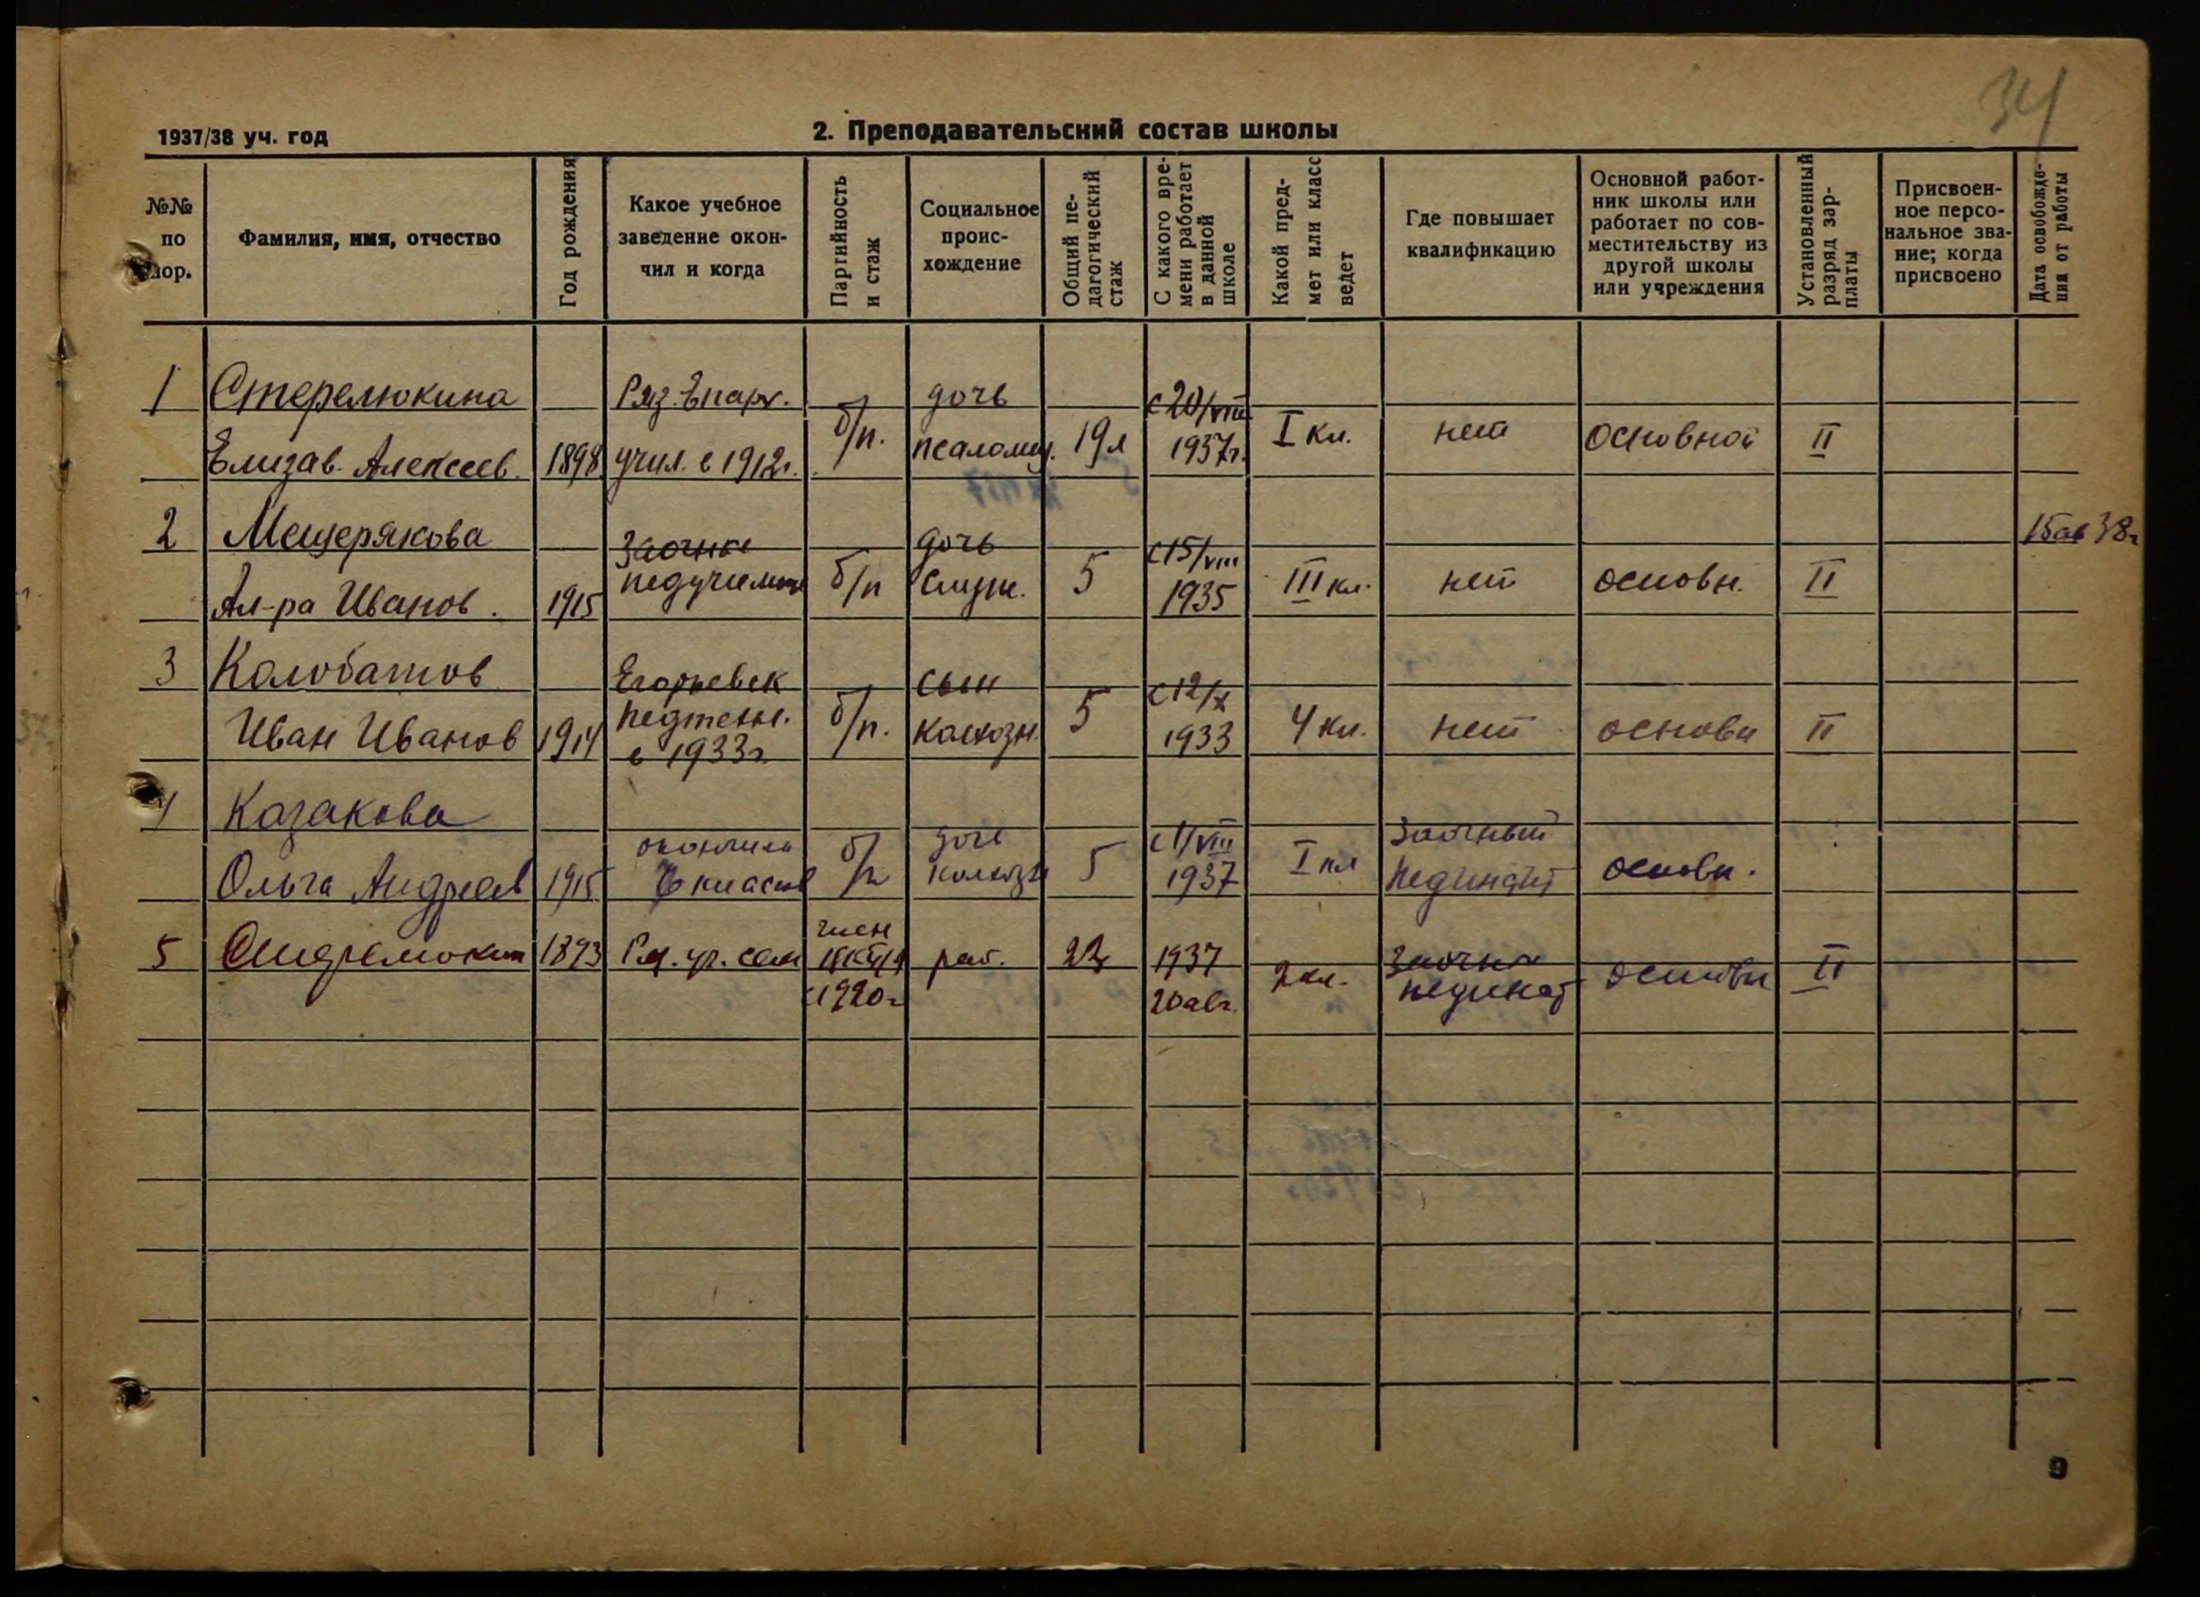 34
1937/38 уч. год
2. Преподавательский состав школы
№№ по пор.
Фамилия, имя, отчество
Год рождения
Какое учебное заведение окончил и когда
Партийность и стаж
Социальное происхождение
Общий педагогический стаж
С какого времени работает в данной школе
Какой предмет или класс ведет
Где повышает квалификацию
Основной работник школы или работает по совместительству из другой школы или учреждения
Установленный разряд зарплаты
Присвоенное персональное звание; когда присвоено
Дата освобождения от работы
1 Стерелюкина Ряз. Епарх. дочь с 20/VIII
Елизав. Алексеев. 1898 учил. в 1912г. б/п. псаломщ. 19л 1937г. I кл. нет основной II
2 Мещерякова Заочное дочь с 15/VIII 15ав 38г
Ал-ра Иванов. 1915 педучилище б/п служ. 5 1935 III кл. нет основн. II
3 Колобатов Егорьевск сын с 12/X
Иван Иванов 1914 педтехн. б/п. колхозн. 5 1933 4 кл. нет основн II
в 1933г.
4 Казакова
окончила дочь с 1/VIII Заочный
Ольга Андреев 1915 классов б/п колхозн 5 1937 I кл пединст основн.
5 1893 член раб. 1937 2 кл. II
с 1920г 20 авг. пединст
9